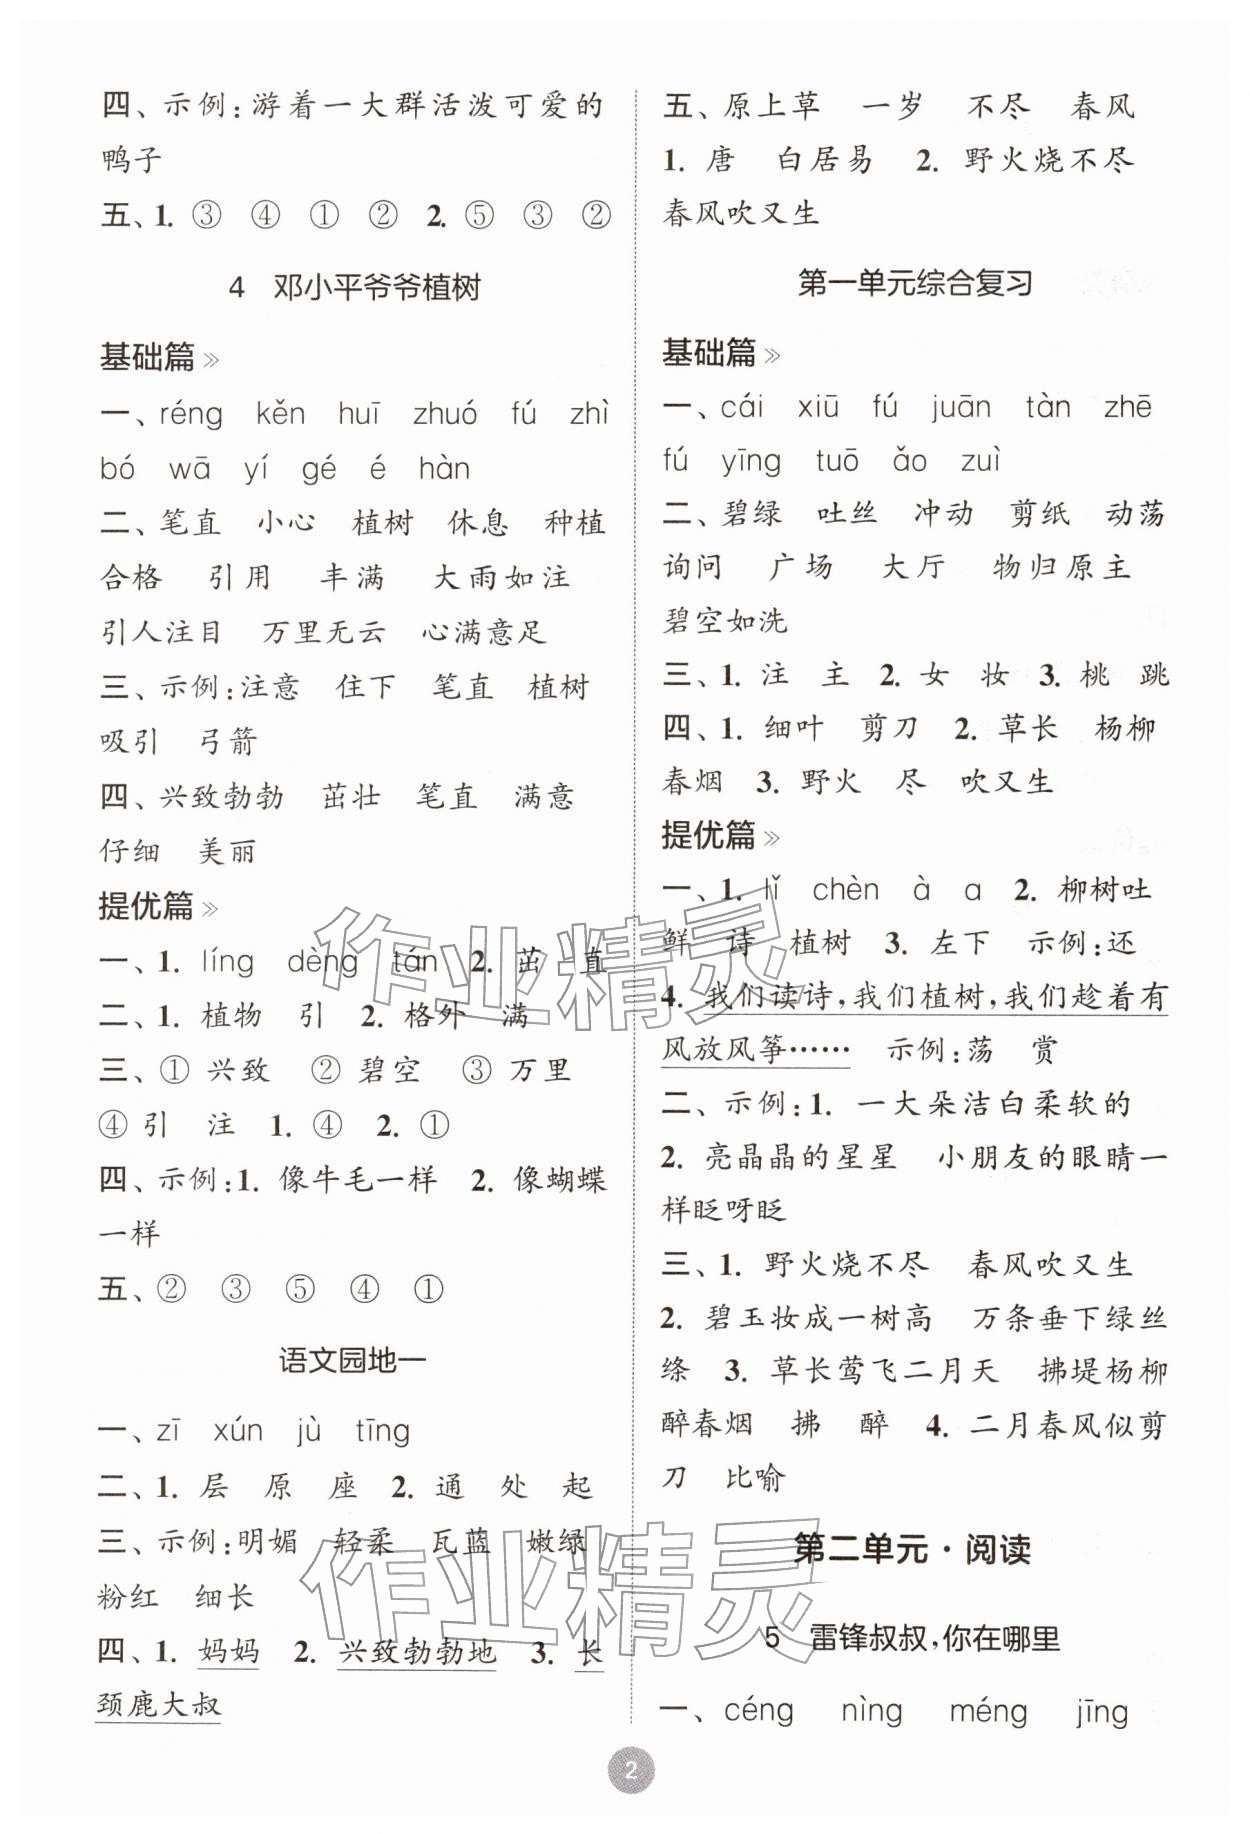 四、示例:游着一大群活泼可爱的
鸭子
五、1. ③ ④ ① ② 2. ⑤ ③ ②
4 邓小平爷爷植树
基础篇 »
一、réng kěn huī zhuó fú zhì
bó wā yí gé é hàn
二、笔直 小心 植树 休息 种植
合格 引用 丰满 大雨如注
引人注目 万里无云 心满意足
三、示例:注意 住下 笔直 植树
吸引 弓箭
四、兴致勃勃 茁壮 笔直 满意
仔细 美丽
提优篇 »
一、1. líng dèng tán 2. 茁 直
二、1. 植物 引 2. 格外 满
三、① 兴致 ② 碧空 ③ 万里
④ 引 注 1. ④ 2. ①
四、示例:1. 像牛毛一样 2. 像蝴蝶
一样
五、② ③ ⑤ ④ ①
语文园地一
一、zī xún jù tīng
二、1. 层 原 座 2. 通 处 起
三、示例:明媚 轻柔 瓦蓝 嫩绿
粉红 细长
四、1. 妈妈 2. 兴致勃勃地 3. 长
颈鹿大叔
五、原上草 一岁 不尽 春风
1. 唐 白居易 2. 野火烧不尽
春风吹又生
第一单元综合复习
基础篇 »
一、cái xiū fú juān tàn zhē
fú yīng tuō ǎo zuì
二、碧绿 吐丝 冲动 剪纸 动荡
询问 广场 大厅 物归原主
碧空如洗
三、1. 注 主 2. 女 妆 3. 桃 跳
四、1. 细叶 剪刀 2. 草长 杨柳
春烟 3. 野火 尽 吹又生
提优篇 »
一、1. lǐ chèn à a 2. 柳树吐
鲜 诗 植树 3. 左下 示例:还
4. 我们读诗,我们植树,我们趁着有
风放风筝…… 示例:荡 赏
二、示例:1. 一大朵洁白柔软的
2. 亮晶晶的星星 小朋友的眼睛一
样眨呀眨
三、1. 野火烧不尽 春风吹又生
2. 碧玉妆成一树高 万条垂下绿丝
绦 3. 草长莺飞二月天 拂堤杨柳
醉春烟 拂 醉 4. 二月春风似剪
刀 比喻
第二单元·阅读
5 雷锋叔叔,你在哪里
一、céng nìng méng jīng
2
作业精灵
作业精灵